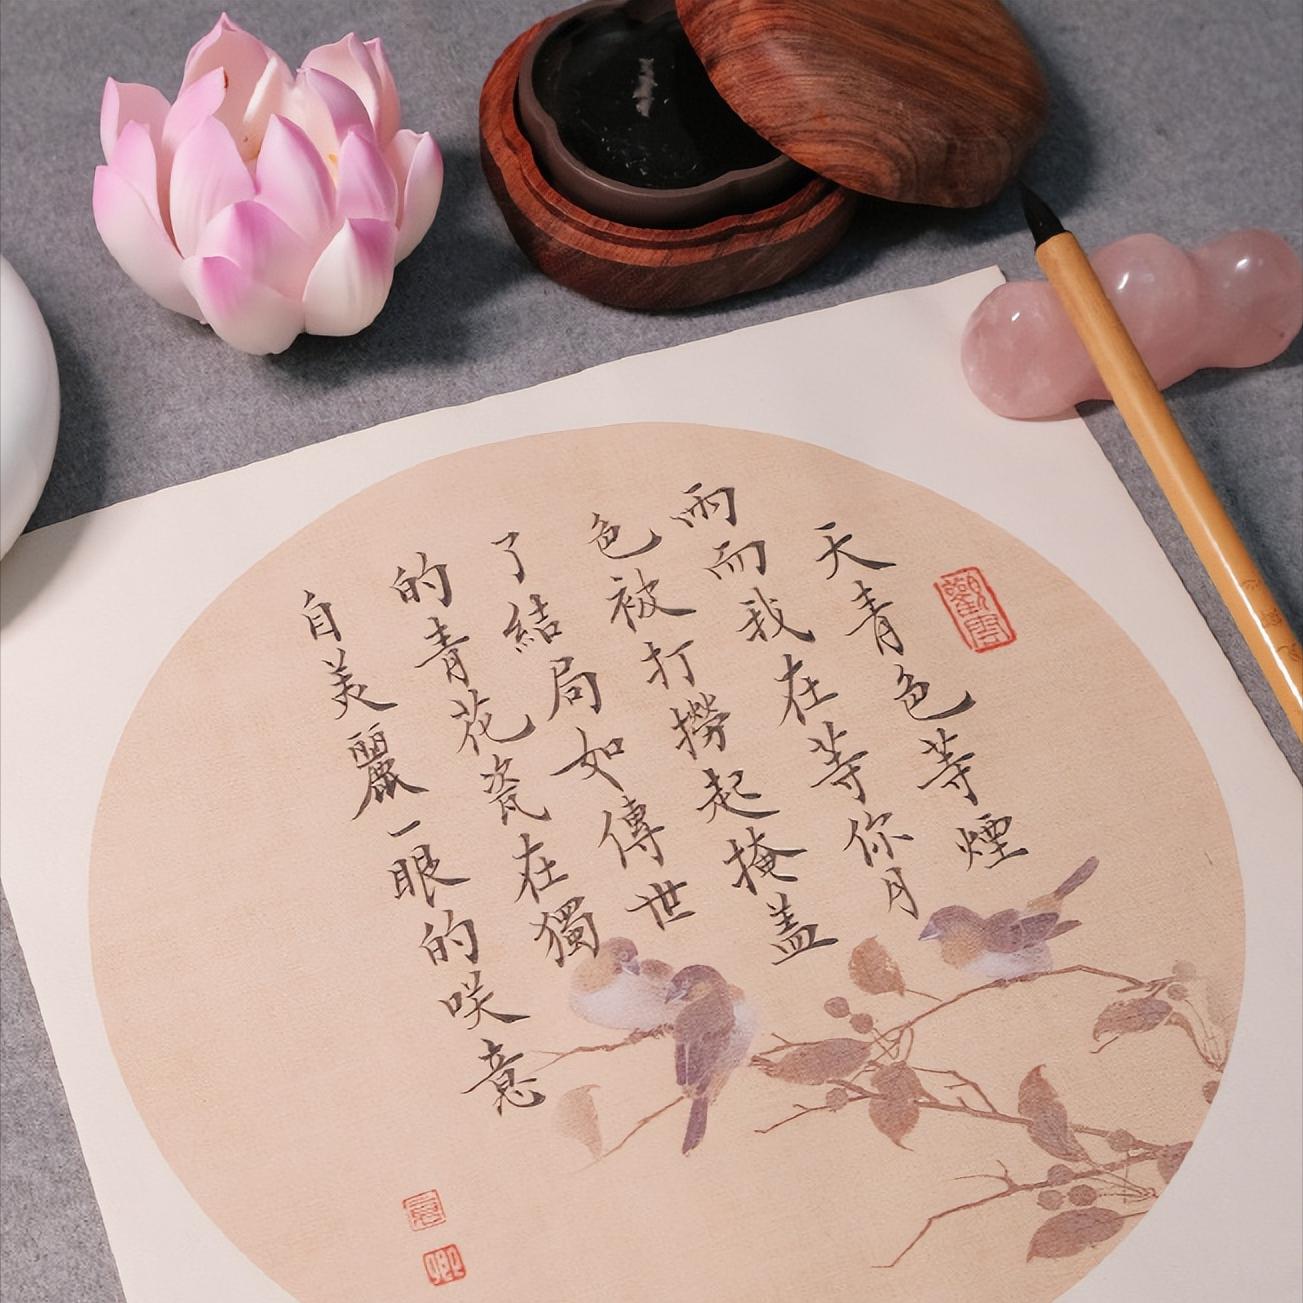 天青色等煙
雨而我在等你月
色被打撈起掩盖
了結局如傳世
的青花瓷在獨
自美麗一眼的咲意